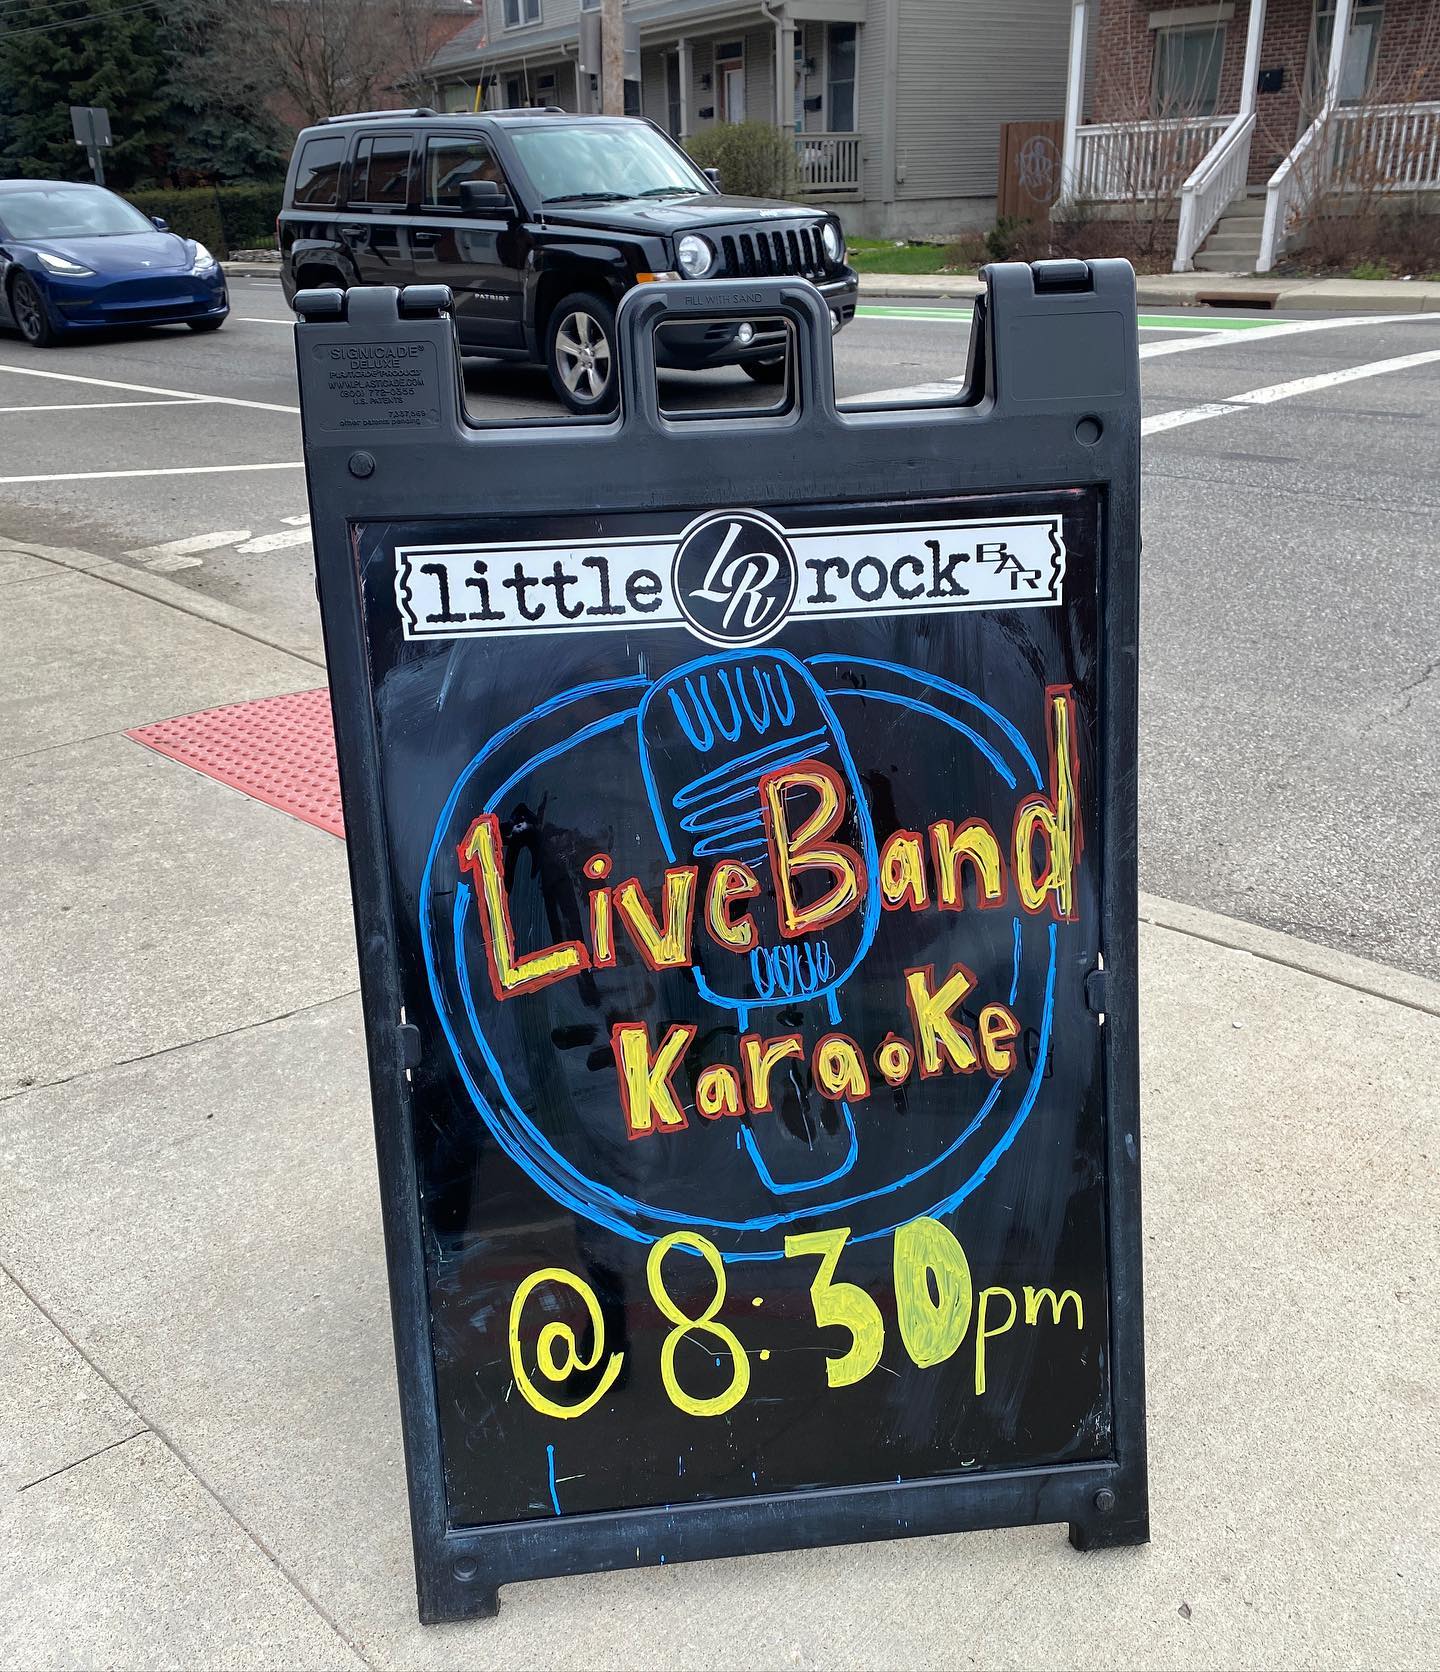 PATRIOT
FILL WITH SAND
SIGNICADE®
DELUXE
PLASTICADE PRODUCTS
WWW.PLASTICADE.COM
(800) 772-0355
U.S. PATENTS
other patents pending
little LR rock BAR
Live Band
KaraoKe
@ 8:30pm